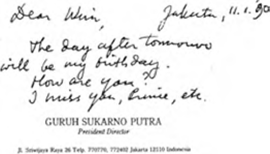 Dear Wim, Jakarta, 11.1.90
The day after tomorrow
will be my birthday.
How are you?
I miss you, Ernie, etc.
GURUH SUKARNO PUTRA
President Director
Jl. Sriwijaya Raya 26 Telp. 770770, 772402 Jakarta 12110 Indonesia